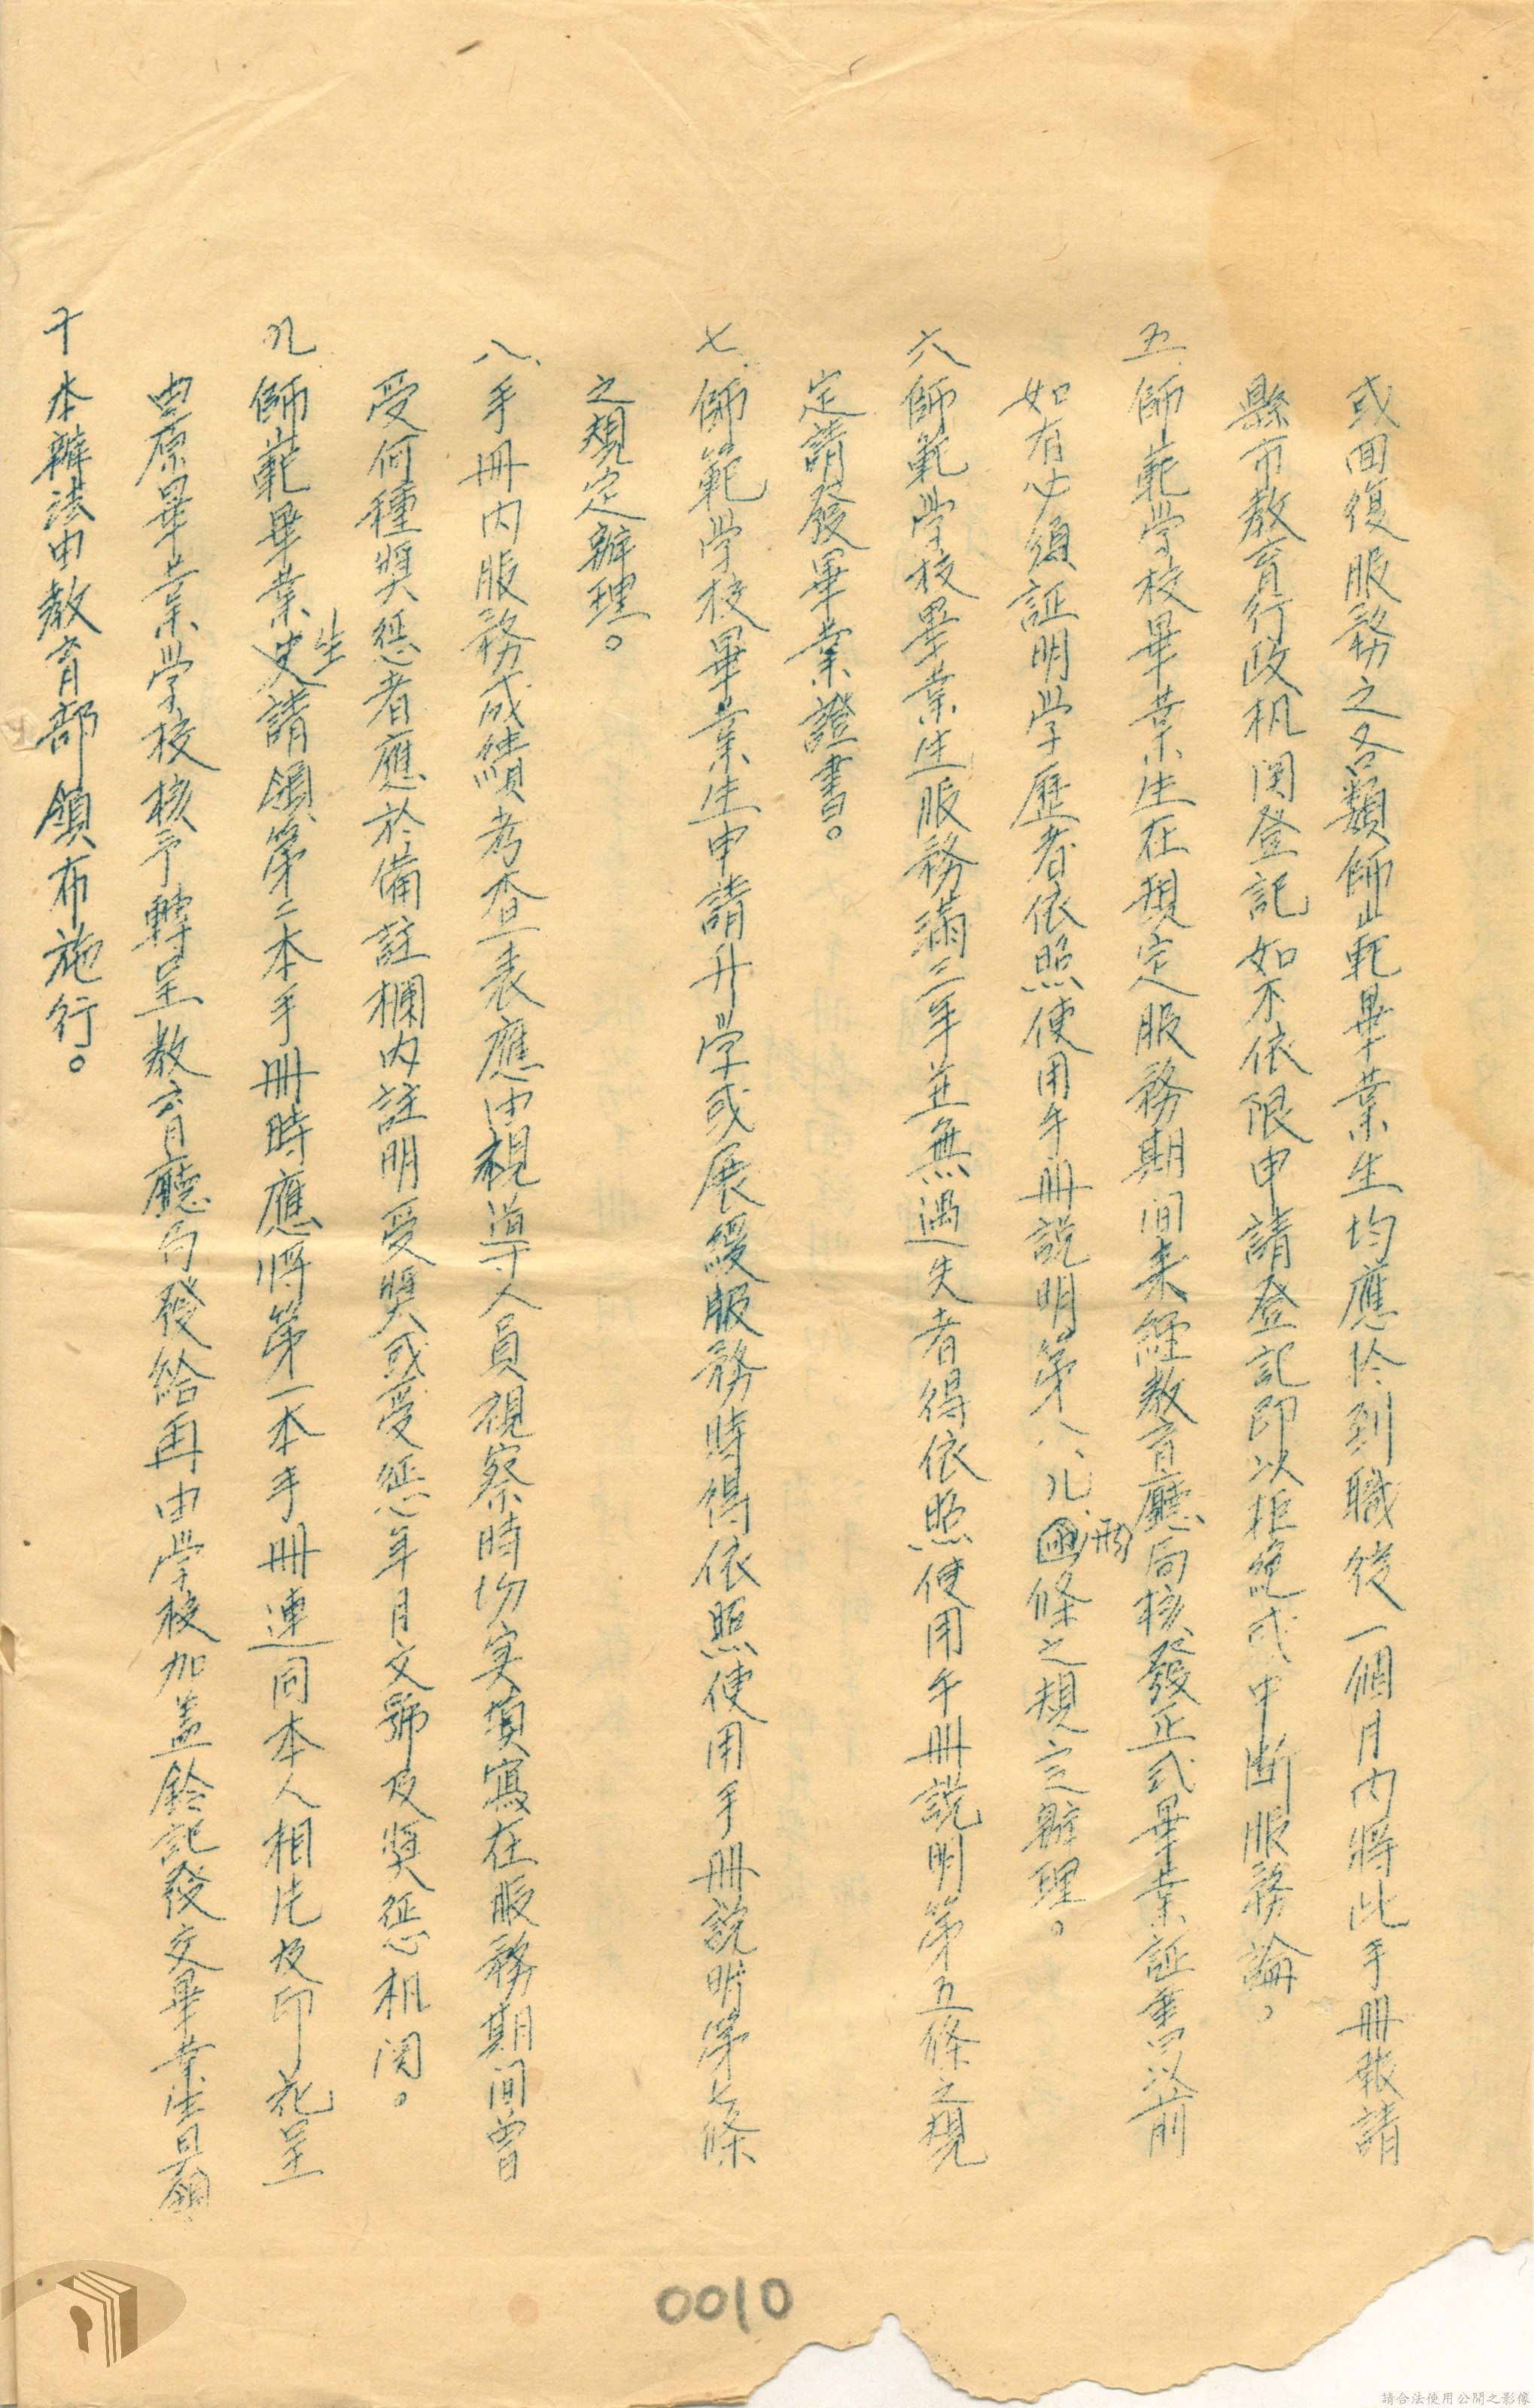 或回復服務之各類師範畢業生均應於到職後一個月內將此手冊報請
縣市教育行政机関登記如不依限申請登記即以拒絕或中斷服務論。
五.師範学校畢業生在規定服務期间未經教育廳局核發正式畢業証書以前
如有必須証明学歷者依照使用手冊説明第八、九、兩條之規定辦理。
六師範学校畢業生服務滿三年並無過失者得依照使用手冊説明第五條之規
定請發畢業證書。
七.師範学校畢業生申請升学或展緩服務時得依照使用手冊説明第七條
之規定辦理。
八、手冊内服務成績考查表應由視導人員視察時切实填寫在服務期间曾
受何種獎惩者應於備註欄内註明受獎或受惩年月文號及獎惩机関。
九師範畢業生請領第二本手冊時應將第一本手冊連同本人相片及印花呈
由原畢業学校核予轉呈教育廳局發給再由学校加盖鈐記發交畢業生具領
十本辦法由教育部頒布施行。
0010
請合法使用公開之影像